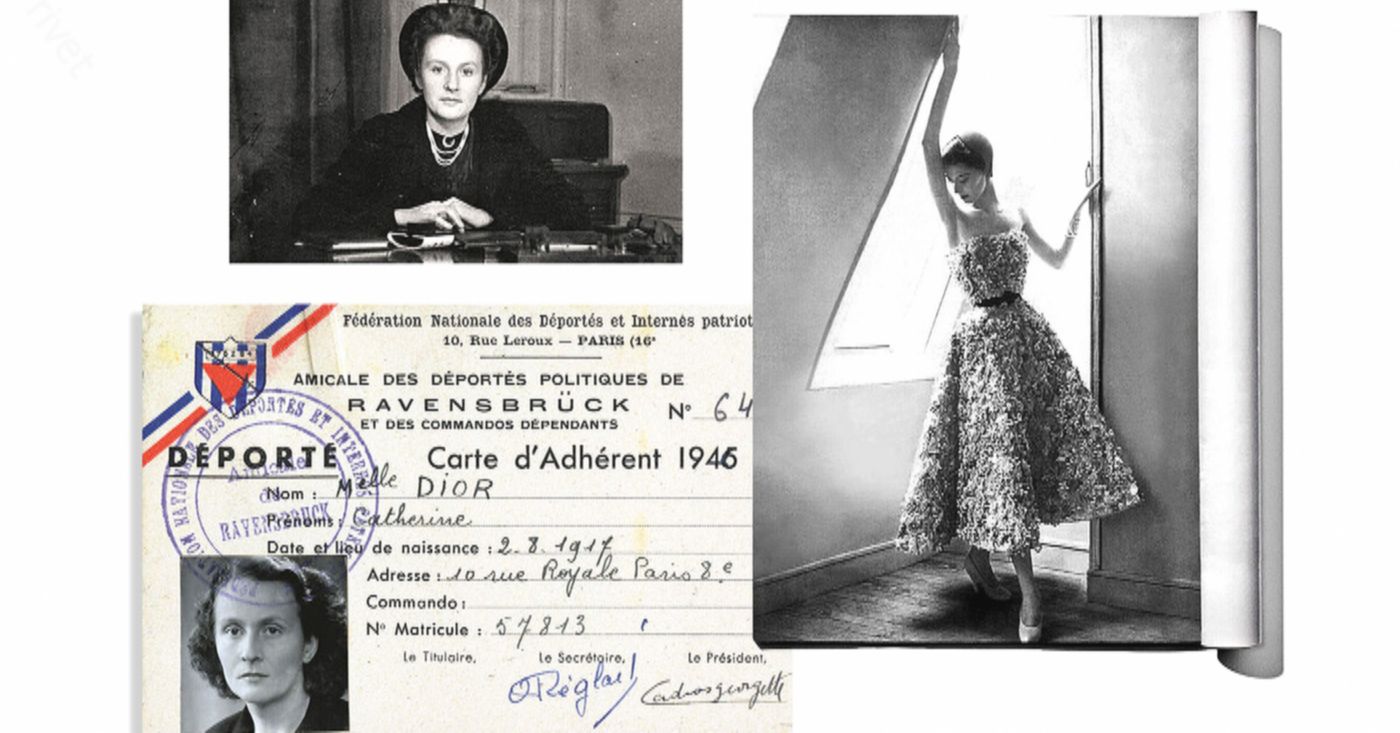 rivet
Fédération Nationale des Déportés et Internés patriot
10, Rue Leroux — PARIS (16ᵉ
AMICALE DES DÉPORTÉS POLITIQUES DE
RAVENSBRÜCK
N° 64
ET DES COMMANDOS DÉPENDANTS
DÉPORTÉ
Carte d'Adhérent 1946
Nom : Melle DIOR
Prénoms : Catherine
Date et lieu de naissance : 2.8.1917
Adresse : 10 rue Royale Paris 8e
Commando :
N° Matricule : 57813
Le Titulaire, Le Secrétaire, Le Président,
Amicale
de
RAVENSBRUCK